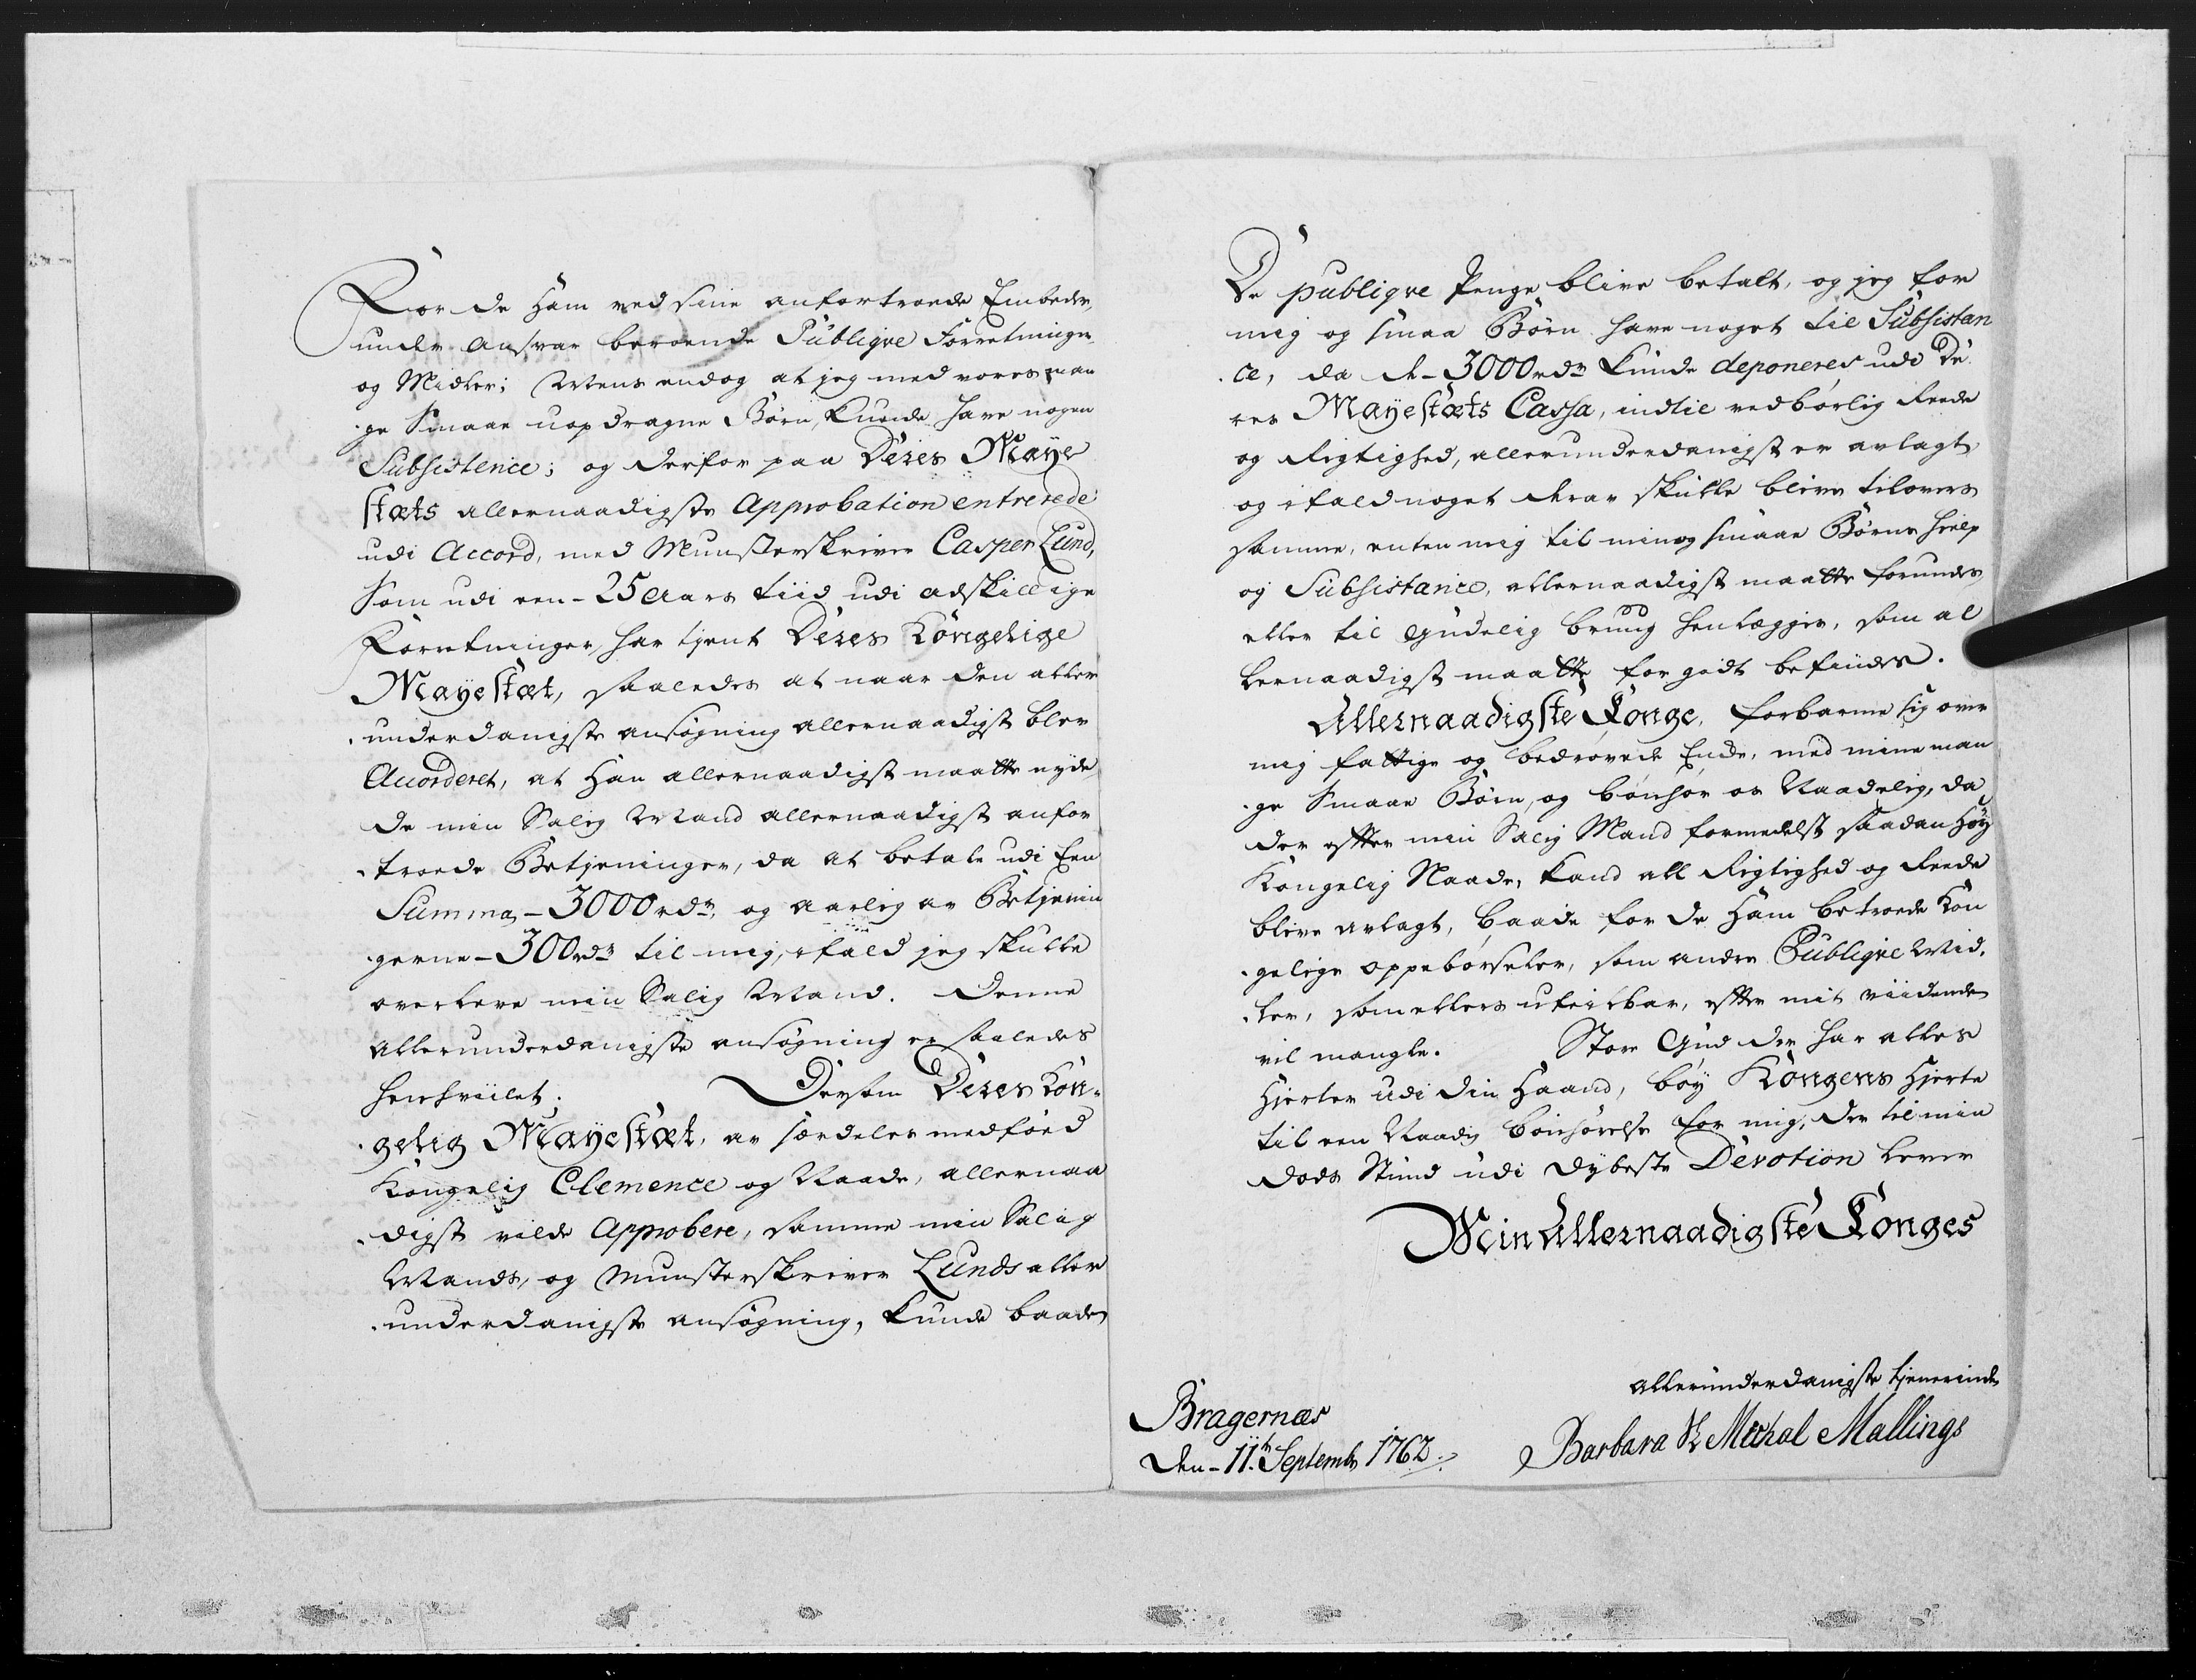 For de Ham ved sine anfortroede Embeder,
under Ansvar beroende Publiqve Forretninger
og Midler; Mens endog at jeg med vores man
ge Smaae uopdragne Börn, kunde have nogen
Subsistence; og derfor paa Deres Maye
stæts allernaadigste Approbation entrerede
udi Accord, med Munsterskriver Casper Lund,
Som udi een - 25 Aars tiid udi adskillige
Forretninger, har tjent Deres Kongelige
Mayestæt, saaledes at naar den aller
underdanigste ansøgning allernaadigst blev
Accorderet, at Han allernaadigst maatte nyde
de min Salig Mand allernaadigst anfor
troede Betjeninger, da at betale udi Een
Summa - 3000 rdr, og aarlig av Betjenin
gerne - 300 rdr til mig, ifald jeg skulle
overleve min Salig Mand. Denne
Allerunderdanigste ansøgning er saaledes
henhviilet. Dersom Deres Kon-
gelig Mayestæt, av særdeles medföed
Kongelig Clemence og Naade, allernaa
digst vilde Approbere, samme min Salig
Mands, og Munsterskriver Lunds aller
underdanigste ansøgning, kunde baade
De publiqve Penge blive betalt, og jeg for
mig og smaa Börn have noget til Subsistan
ce, da de - 3000 rdr kunde deponeres udi De
res Mayestæts Cassa, indtil vedbörlig Reede
og Rigtighed, allerunderdanigst er avlagt
og ifald noget derav skulle blive tilovers
samme, enten mig til min og smaae Börns hielp
og Subsistance, allernaadigst maatte forundes
eller til Gudelig brug henlægges, som al
lernaadigst maatte for godt befindes.
Allernaadigste Konge, forbarme sig over
mig fattige og bedrøvede Enke, med mine man
ge Smaae Börn, og bönhör os Naadelig, da
der efter min Salig Mand formedelst saadan Høy
Kongelig Naade, kand all Rigtighed og Reede
blive avlagt, baade for de Ham betroede Kon
gelige oppebörseler, som andre Publiqve Mid,
ler, som ellers ufeilbar, efter mit viidende
vil mangle. Store Gud der har alles
Hjerter udi din Haand, böy Kongens Hjerte
til een Naadig bönhörelse for mig, der til min
döds Stund udi dybeste Devotion lever
Min Allernaadigste Konges
allerunderdanigste tjenerinde
Bragernæs
den - 11te Septembr 1762.
Barbara Sl Michal Mallings